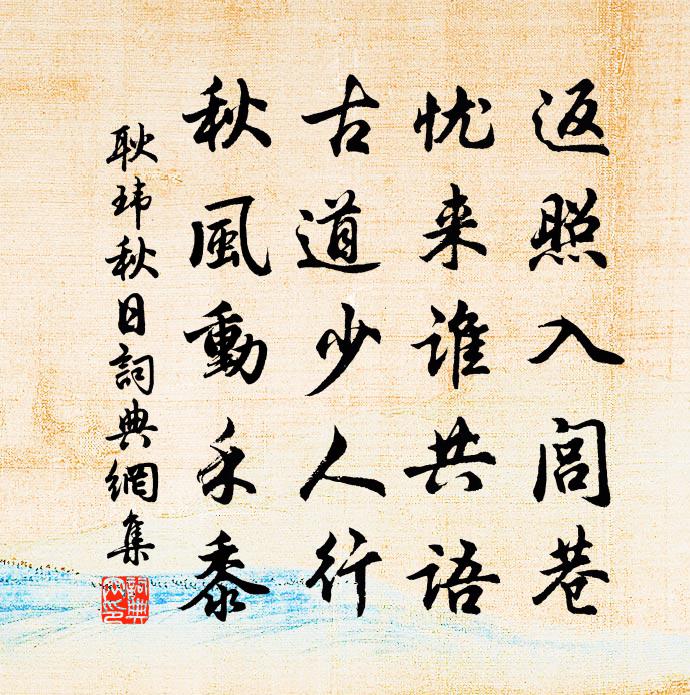 返照入闾巷
忧来谁共语
古道少人行
秋風動禾黍
耿玮秋日詞典網集